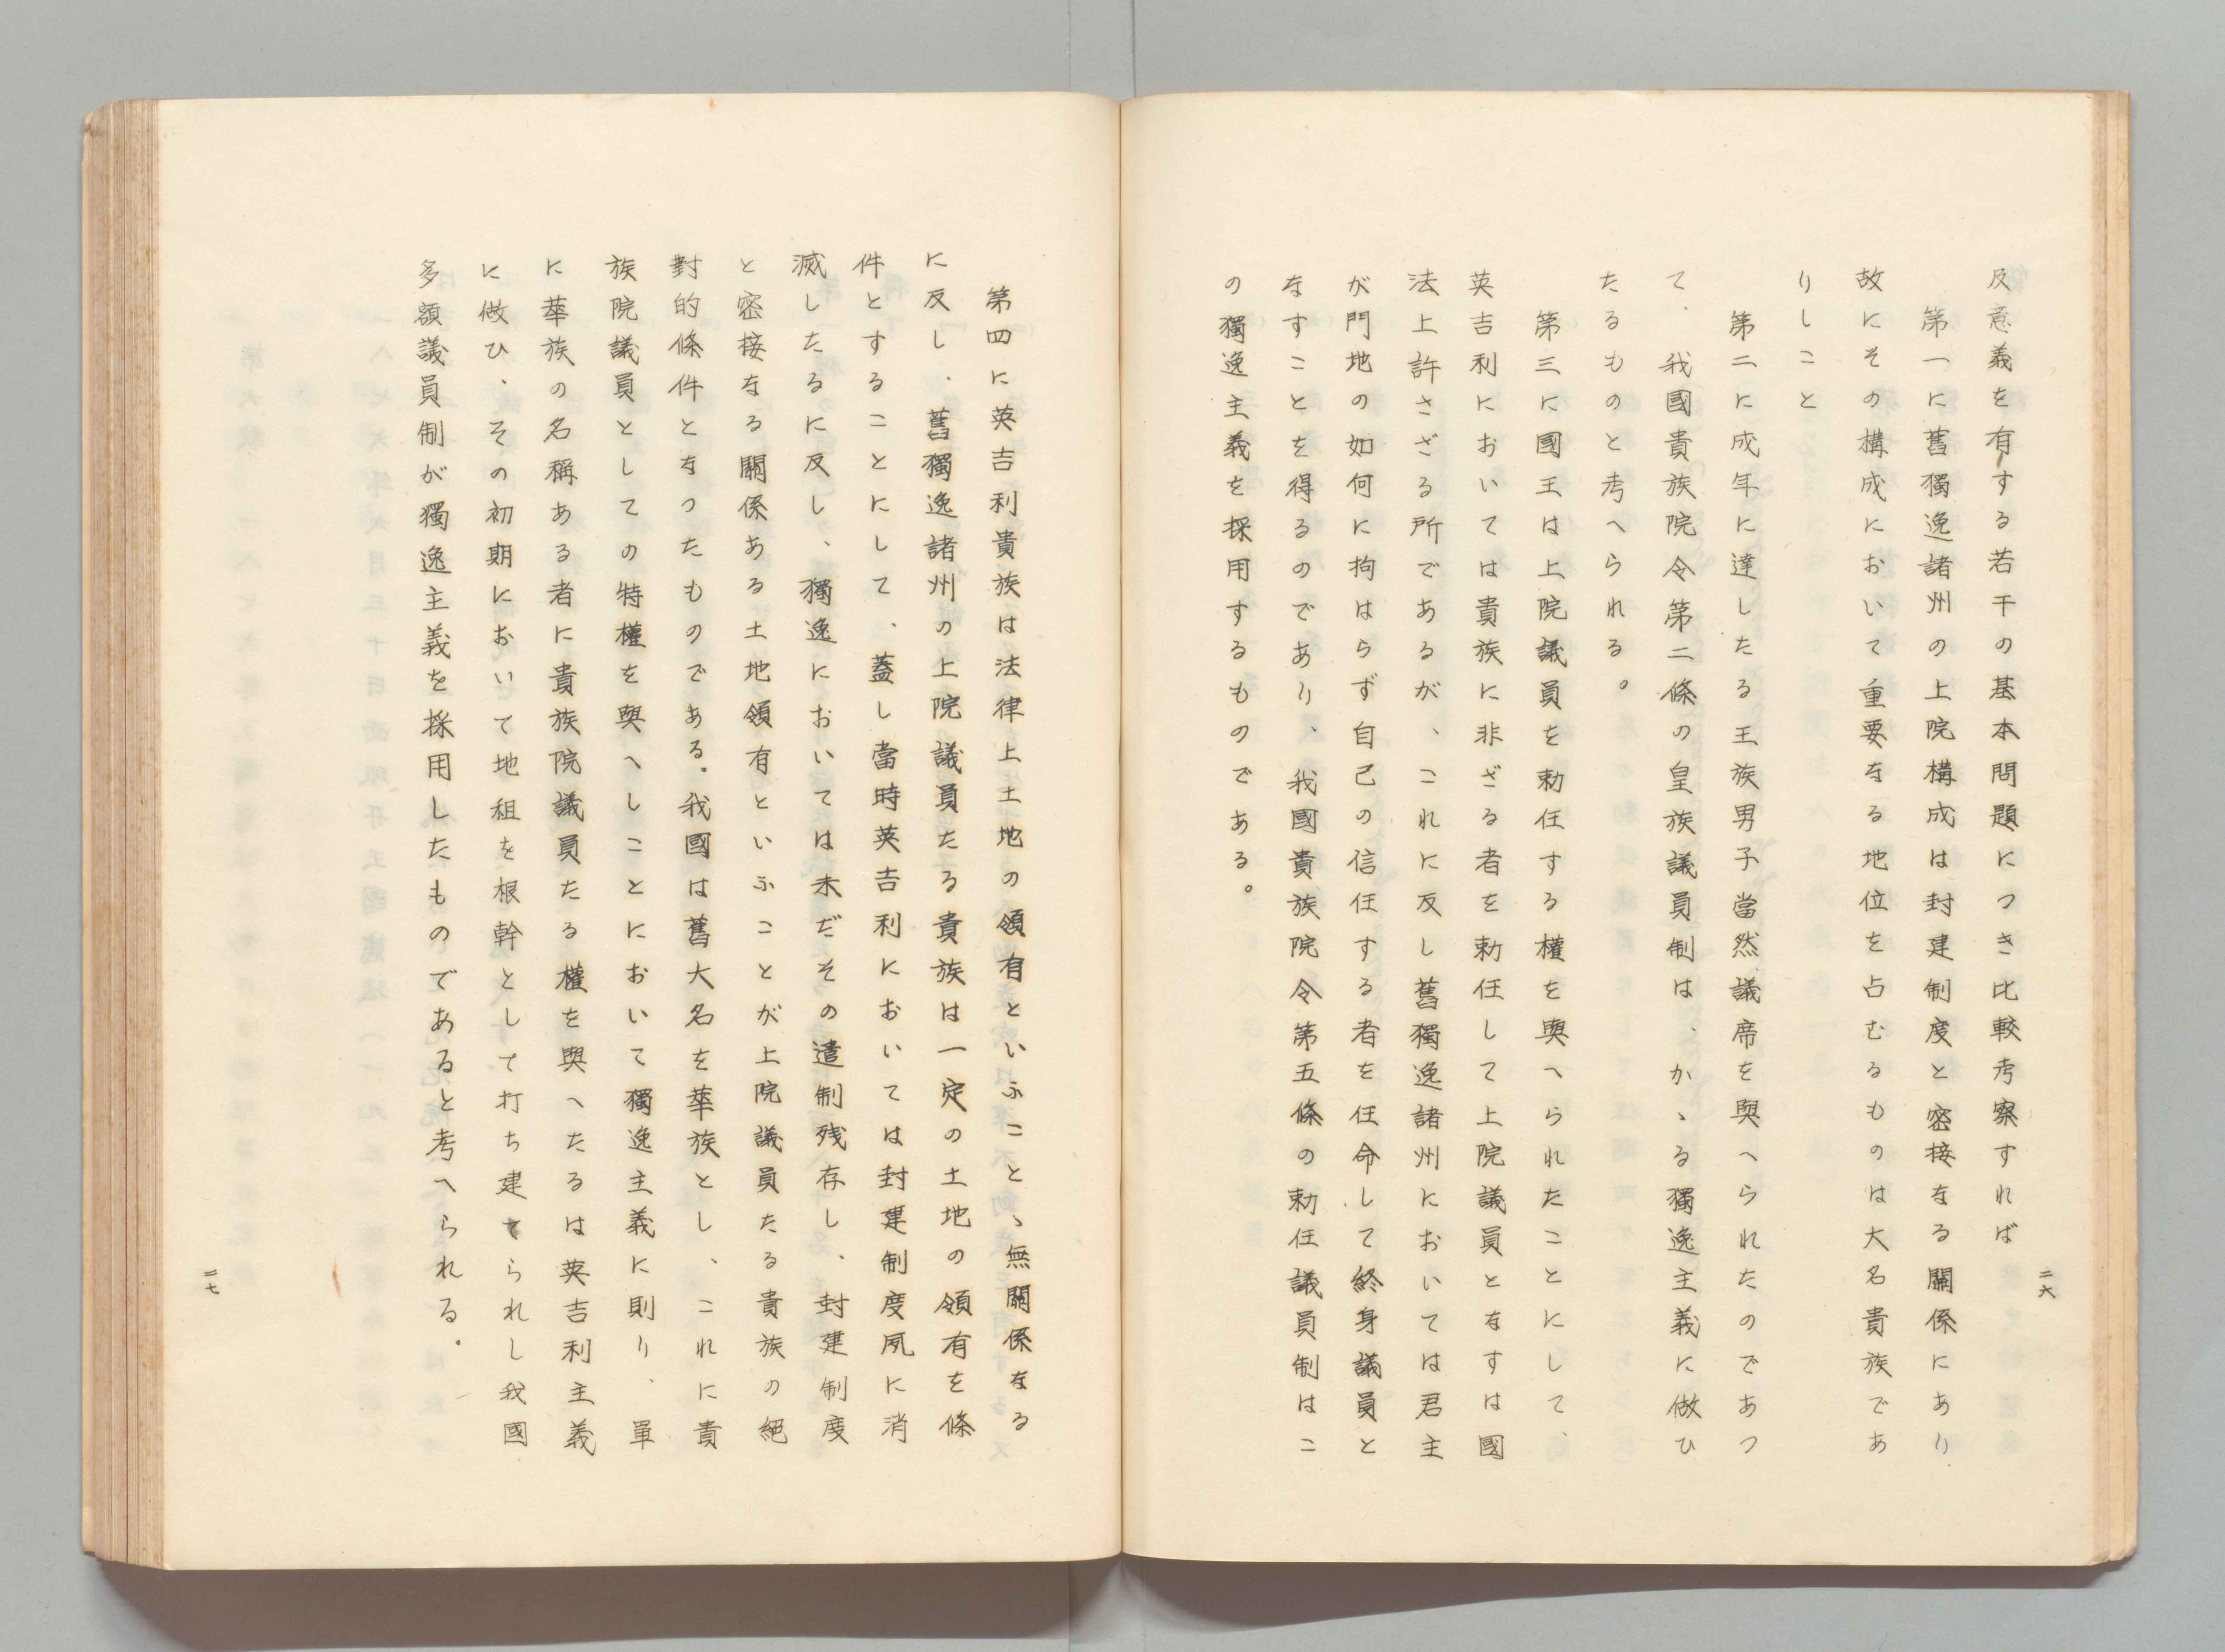 二六
及意義を有する若干の基本問題につき比較考察すれば
第一に舊獨逸諸州の上院構成は封建制度と密接なる關係にあり
故にその構成において重要なる地位を占むるものは大名貴族であ
りしこと
第二に成年に達したる王族男子當然議席を與へられたのであつ
て、我國貴族院令第二條の皇族議員制は、かゝる獨逸主義に倣ひ
たるものと考へられる。
第三に國王は上院議員を勅任する權を與へられたことにして、
英吉利においては貴族に非ざる者を勅任して上院議員となすは國
法上許さざる所であるが、これに反し舊獨逸諸州においては君主
が門地の如何に拘はらず自己の信任する者を任命して終身議員と
なすことを得るのであり、我國貴族院令第五條の勅任議員制はこ
の獨逸主義を採用するものである。
第四に英吉利貴族は法律上土地の領有といふことゝ無關係なる
に反し、舊獨逸諸州の上院議員たる貴族は一定の土地の領有を條
件とすることにして、蓋し當時英吉利においては封建制度夙に消
滅したるに反し、獨逸においては未だその遺制残存し、封建制度
と密接なる關係ある土地領有といふことが上院議員たる貴族の絕
對的條件となつたものである。我國は舊大名を華族とし、これに貴
族院議員としての特權を與へしことにおいて獨逸主義に則り、單
に華族の名稱ある者に貴族院議員たる權を與へたるは英吉利主義
に倣ひ、その初期において地租を根幹として打ち建てられし我國
多額議員制が獨逸主義を採用したものであると考へられる。
二七